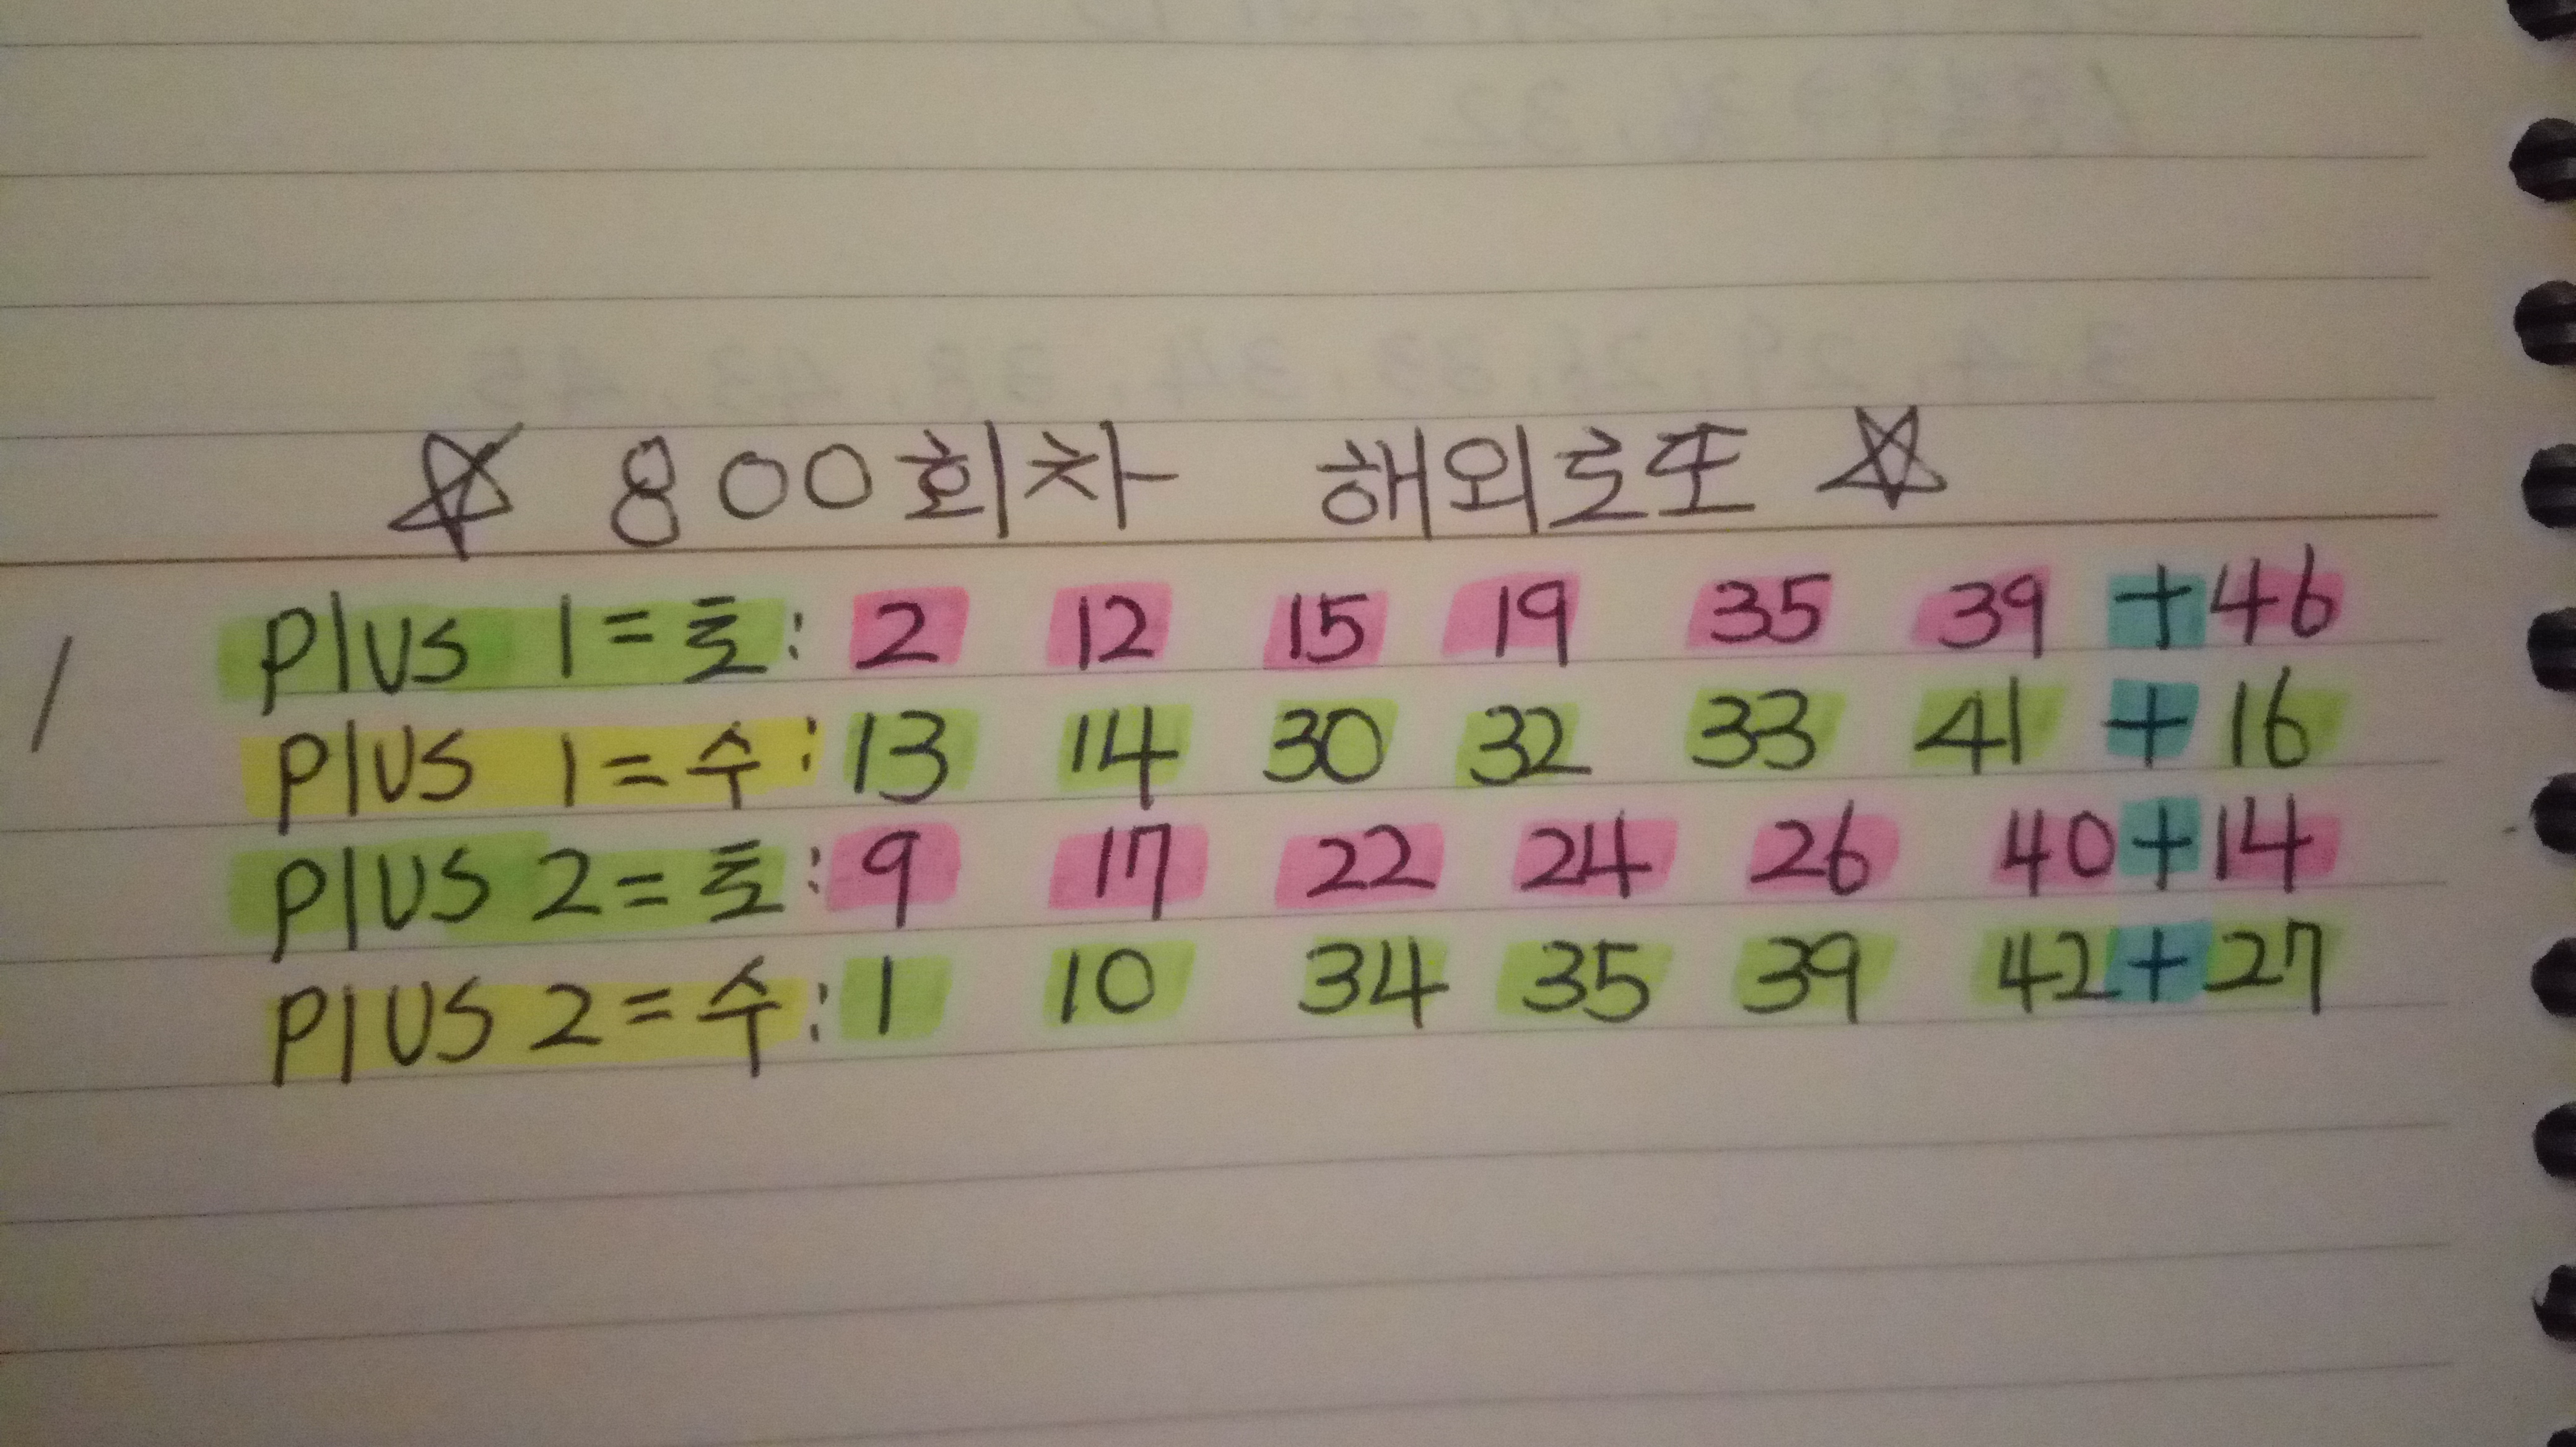 ☆ 800회차 해외로또 ☆
plus 1 = 토 : 2 12 15 19 35 39 + 46
plus 1 = 수 : 13 14 30 32 33 41 + 16
plus 2 = 토 : 9 17 22 24 26 40 + 14
plus 2 = 수 : 1 10 34 35 39 42 + 27